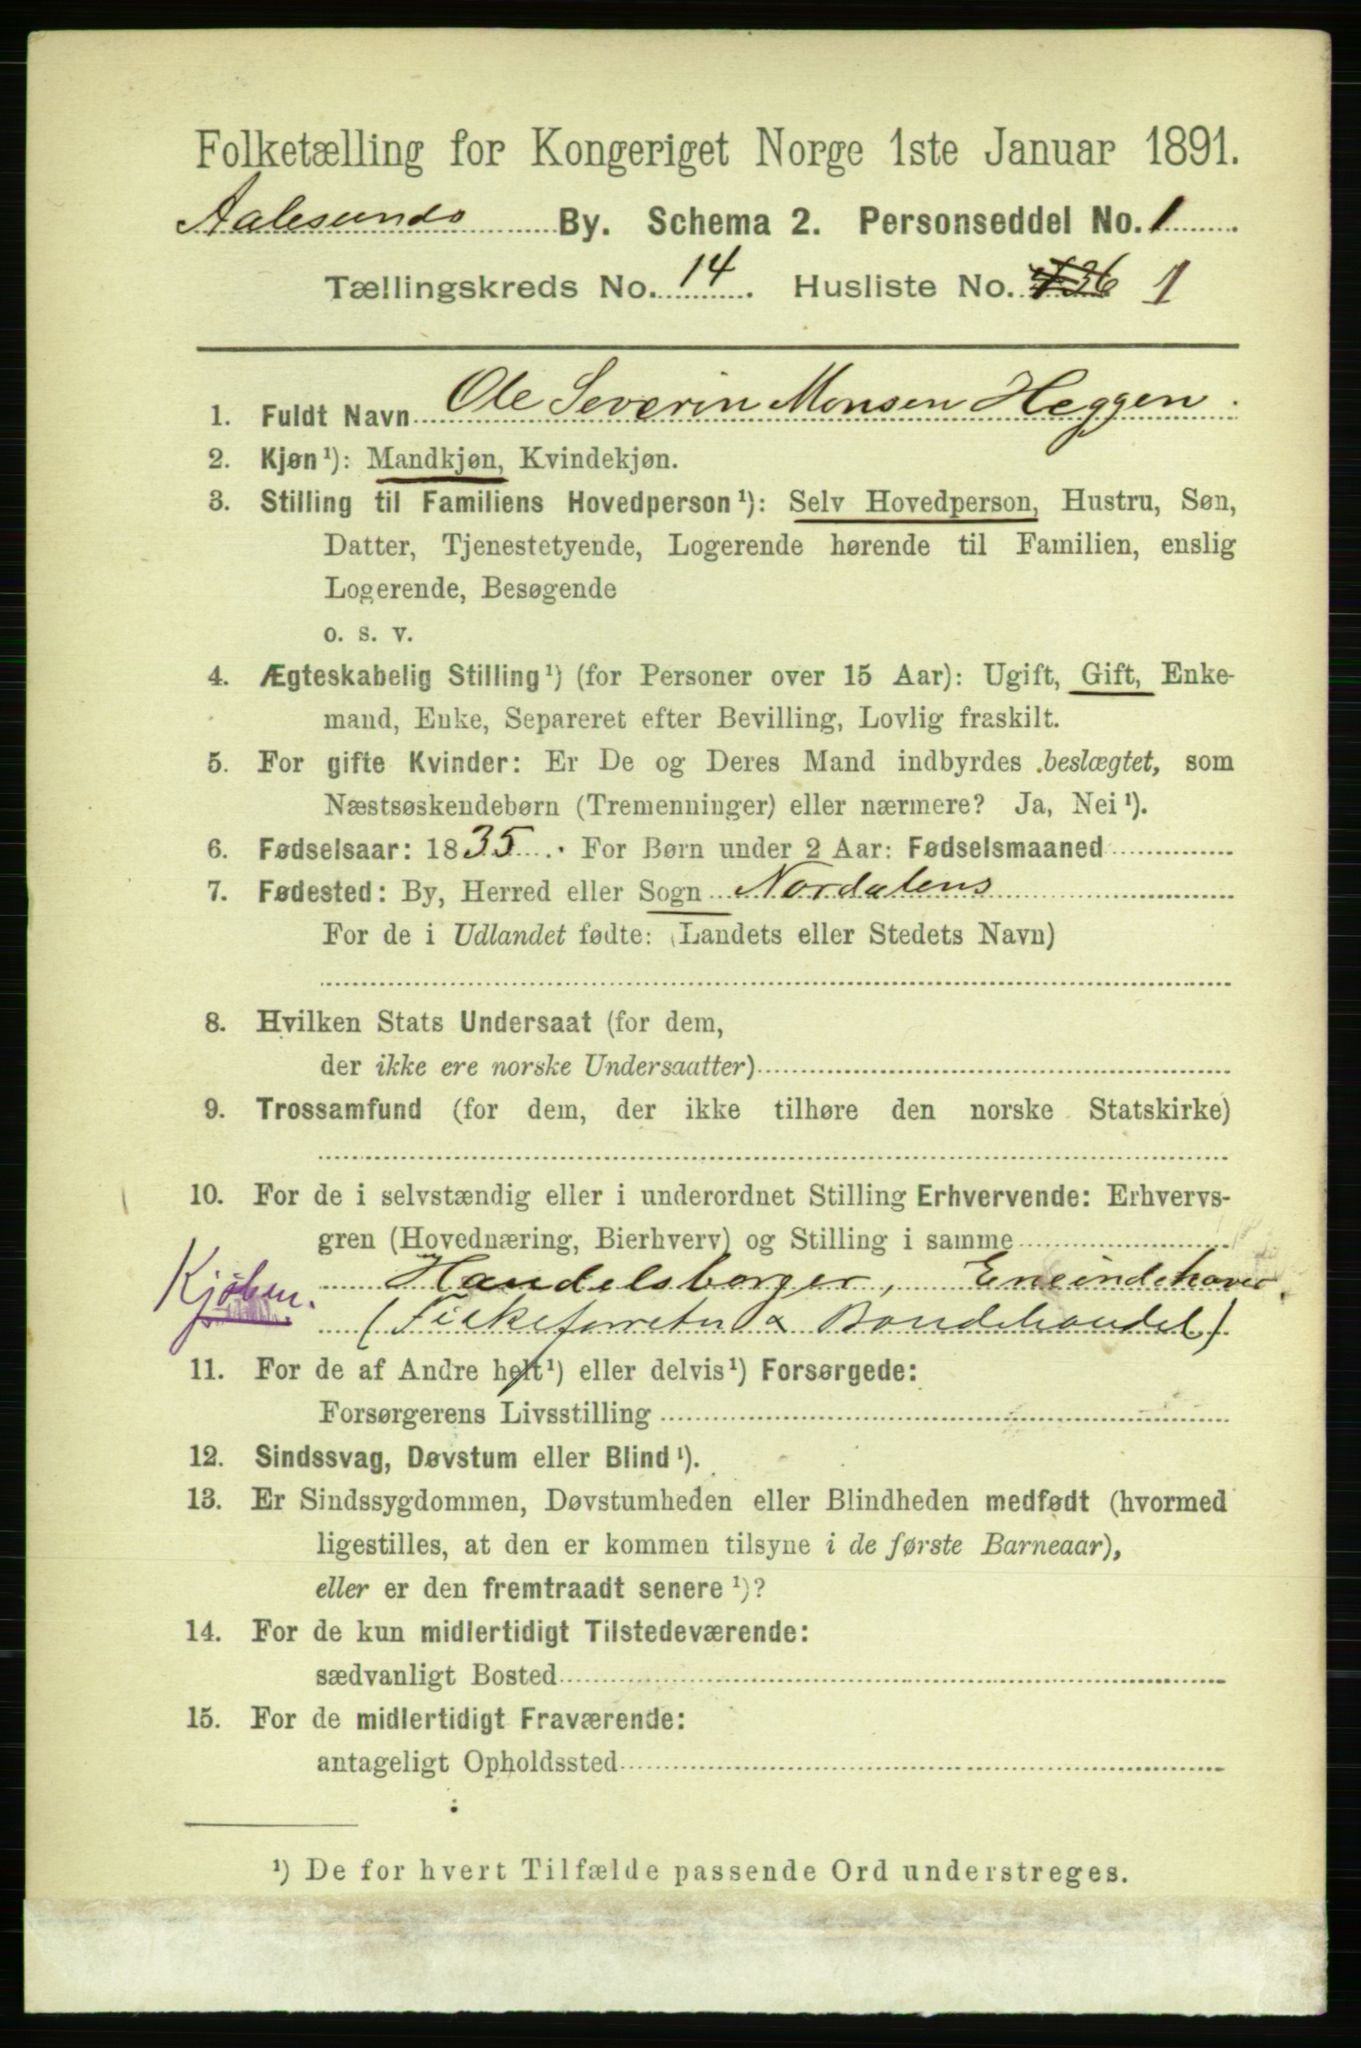 Folketælling for Kongeriget Norge 1ste Januar 1891.
Aalesunds By. Schema 2. Personseddel No. 1
Tællingskreds No. 14. Husliste No. 736 1
1. Fuldt Navn Ole Severin Monsen Heggen.
2. Kjøn¹): Mandkjøn, Kvindekjøn.
3. Stilling til Familiens Hovedperson¹): Selv Hovedperson, Hustru, Søn,
Datter, Tjenestetyende, Logerende hørende til Familien, enslig
Logerende, Besøgende
o. s. v.
4. Ægteskabelig Stilling¹) (for Personer over 15 Aar): Ugift, Gift, Enke-
mand, Enke, Separeret efter Bevilling, Lovlig fraskilt.
5. For gifte Kvinder: Er De og Deres Mand indbyrdes beslægtet, som
Næstsøskendebørn (Tremenninger) eller nærmere? Ja, Nei¹).
6. Fødselsaar: 1835. For Børn under 2 Aar: Fødselsmaaned
7. Fødested: By, Herred eller Sogn Nordalens
For de i Udlandet fødte: (Landets eller Stedets Navn)
8. Hvilken Stats Undersaat (for dem,
der ikke ere norske Undersaatter)
9. Trossamfund (for dem, der ikke tilhøre den norske Statskirke)
10. For de i selvstændig eller i underordnet Stilling Erhvervende: Erhvervs-
gren (Hovednæring, Bierhverv) og Stilling i samme
Kjøbm. Handelsborger, Eneindehaver.
(Fiskeforretn & Bondehandel)
11. For de af Andre helt¹) eller delvis¹) Forsørgede:
Forsørgerens Livsstilling
12. Sindssvag, Døvstum eller Blind¹).
13. Er Sindssygdommen, Døvstumheden eller Blindheden medfødt (hvormed
ligestilles, at den er kommen tilsyne i de første Barneaar),
eller er den fremtraadt senere¹)?
14. For de kun midlertidigt Tilstedeværende:
sædvanligt Bosted
15. For de midlertidigt Fraværende:
antageligt Opholdssted
¹) De for hvert Tilfælde passende Ord understreges.